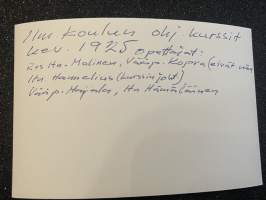 Ilm. koulun ohj. kurssit
kev. 1925 opettajat:
Ins. Ita. Malinen, Vääp. Kopra (eivät
Ltn. Hamelius (kurssinjoht)
Vääp. Marjala, Ltn Hämäläinen